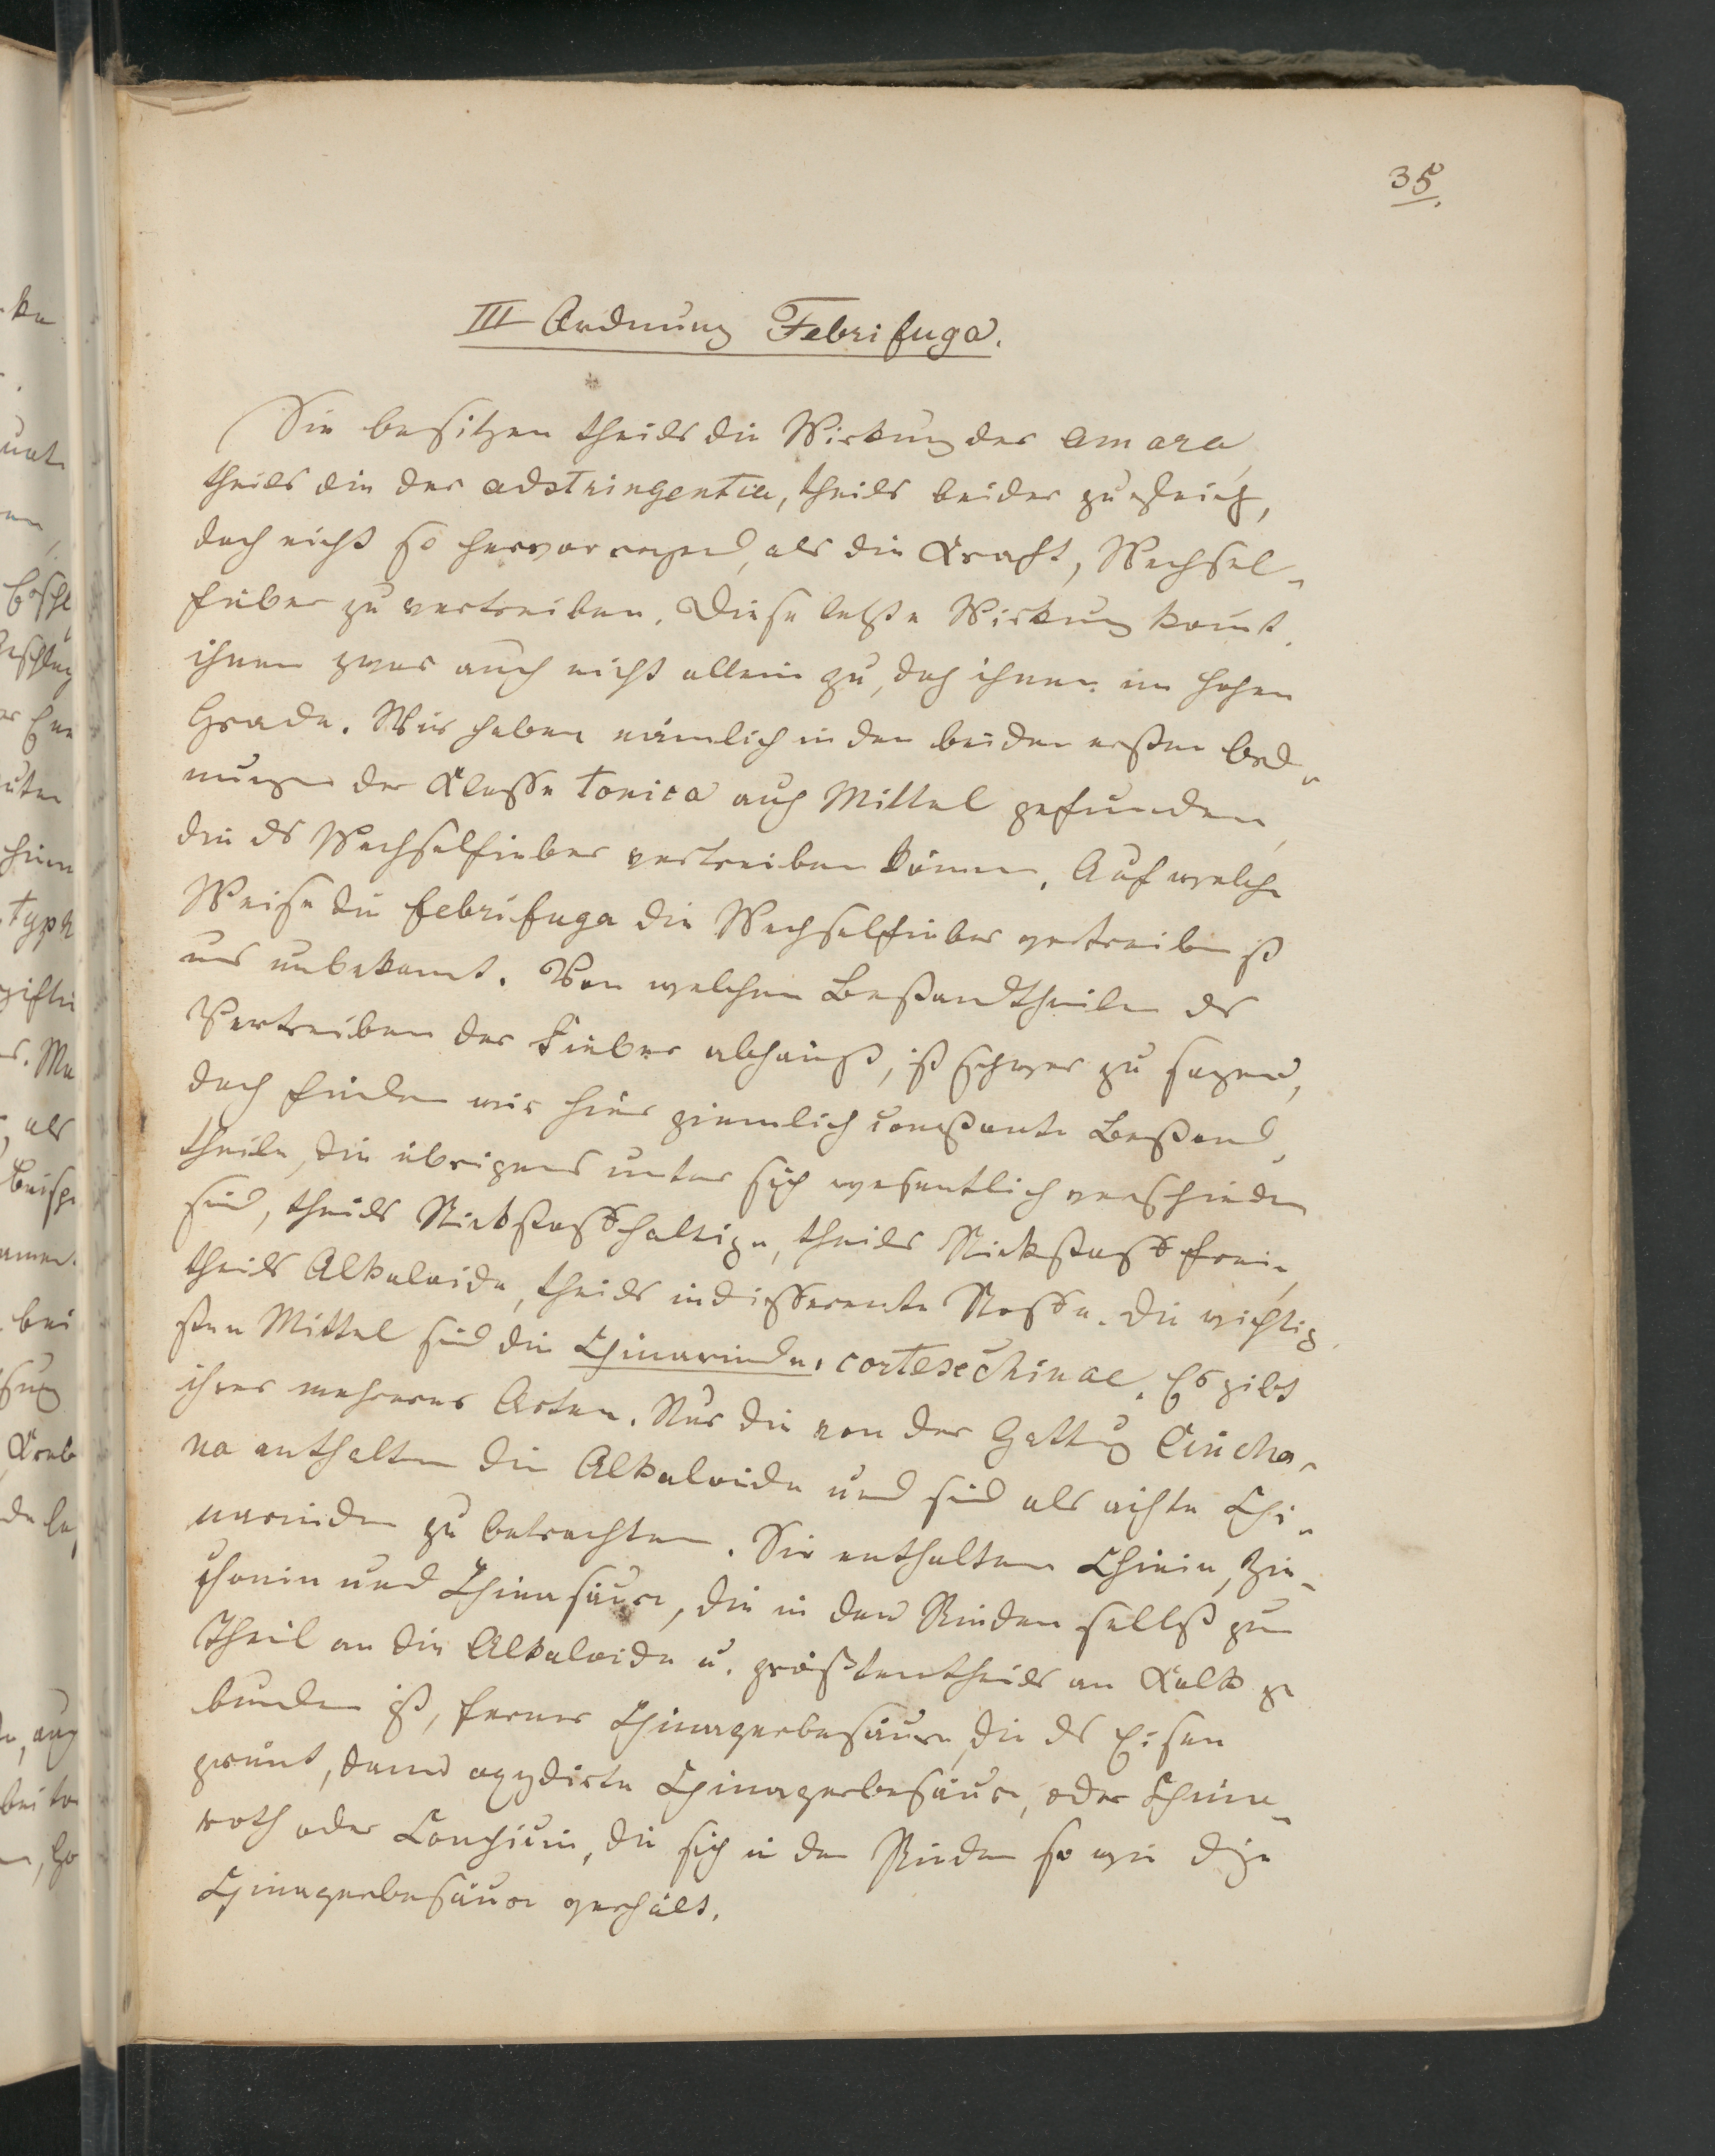 35.
III Ordnung Febrifuga.
Sie besitzen theils die Wirkung der amara,
theils die der adstringentia, theils beider zugleich,
doch nicht so hervorragend, als die Kraft, Wechsel-
fieber zu vertreiben. Diese letzte Wirkung komt
ihnen zwar auch nicht allein zu, doch ihnen im hohen
Grade. Wir haben nämlich in den beiden ersten Ord-
nungen der Klasse Tonica auch Mittel gefunden,
die ds Wechselfieber vertreiben könen. Auf welche
Weise die febrifuga die Wechselfieber vertreiben ist
uns unbekant. Von welchen Bestandtheilen ds
Vertreiben der Fieber abhängt, ist schwer zu sagen,
doch finden wir hier ziemlich constante Bestand-
theile, die übrigens unter sich wesentlich verschieden
sind, theils Stickstoffhaltige, theils Stickstofffreie,
theils Alkaloide, theils indifferente Stoffe. Die wichtig-
sten Mittel sind die Chinarinde, cortex chinae. Es gibt
ihrer mehrere Arten. Nur die von der Gattug Cincho-
na enthalten die Alkaloide und sind als ächte Chi-
narinden zu betrachten. Sie enthalten Chinin, Zin-
chonin und Chinasäure, die in den Rinden selbst zum
Theil an die Alkaloide u. größtentheils an Kalk ge
bunden ist, ferner Chinagerbesäure, die ds Eisen
grünt, dann oxydirte Chinagerbesäure, oder China-
roth oder, die sich in den Rinden so wie die
Chinagerbesäure verhält.
ka
unt
Typh
gifti
als
bei
auch